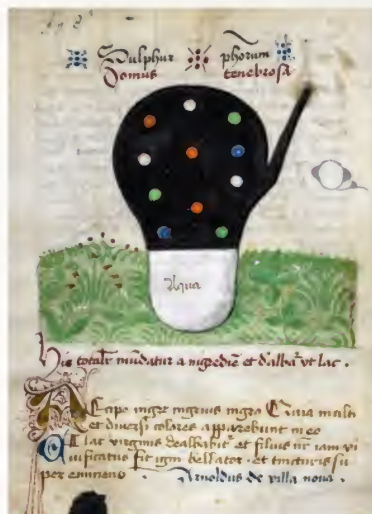 Sulphur phorum
Domus tenebrosa
Aqua
Hic totalr mūdatur a nigredīe et d'albaꝰ vt lac.
Accipe niger nigrius nigro
et diversi colores apparebunt in eo
lac virginis dealbabitꝰ et filius nr̄ iam vi
uificatus fit igni bellator et tincturis su
per eminens. Arnoldus de villa nova.